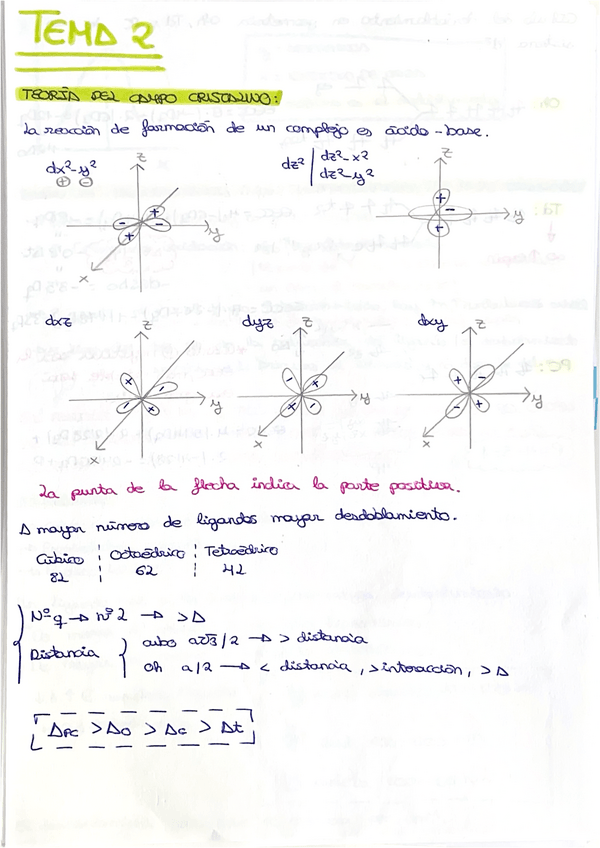 TEMA 2
TEORÍA DEL CAMPO CRISTALINO:
La reacción de formación de un complejo es ácido-base.
dx²-y²
⊕ ⊖
dz² | dz²-x²
dz²-y²
z
y
x
+
-
-
+
z
y
+
-
+
dxz
z
y
x
dyz
z
y
x
dxy
z
y
x
+
-
-
+
La punta de la flecha indica la parte positiva.
A mayor número de ligandos mayor desdoblamiento.
Cúbico | Octaédrico | Tetraédrico
8L 6L 4L
Nº q → nº 2 → >Δ
Distancia
cubo a√3/2 → > distancia
Oh a/2 → < distancia, > interacción, > Δ
Δpc > Δo > Δc > Δt